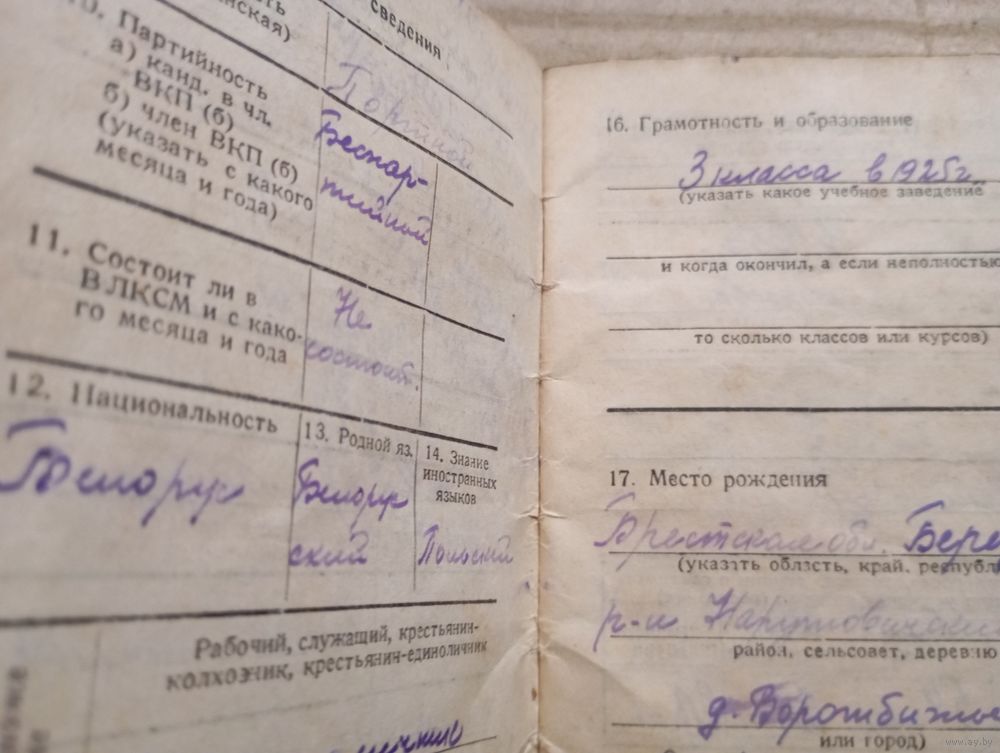 сведения
нская)
Портной
10. Партийность
а) канд. в чл.
ВКП (б)
б) член ВКП (б)
(указать с какого
месяца и года)
Беспар-
тийной
11. Состоит ли в
ВЛКСМ и с како-
го месяца и года
Не
состоит.
12. Национальность
Белорус
13. Родной яз.
Белорус
ский
14. Знание
иностранных
языков
Польский
Рабочий, служащий, крестьянин-
колхозник, крестьянин-единоличник
16. Грамотность и образование
3 класса в 1925 г.
(указать какое учебное заведение
и когда окончил, а если неполностью
то сколько классов или курсов)
17. Место рождения
Брестская обл. Бере
(указать область, край, республ
р-н
район, сельсовет, деревню
д.
или город)
www.ay.by